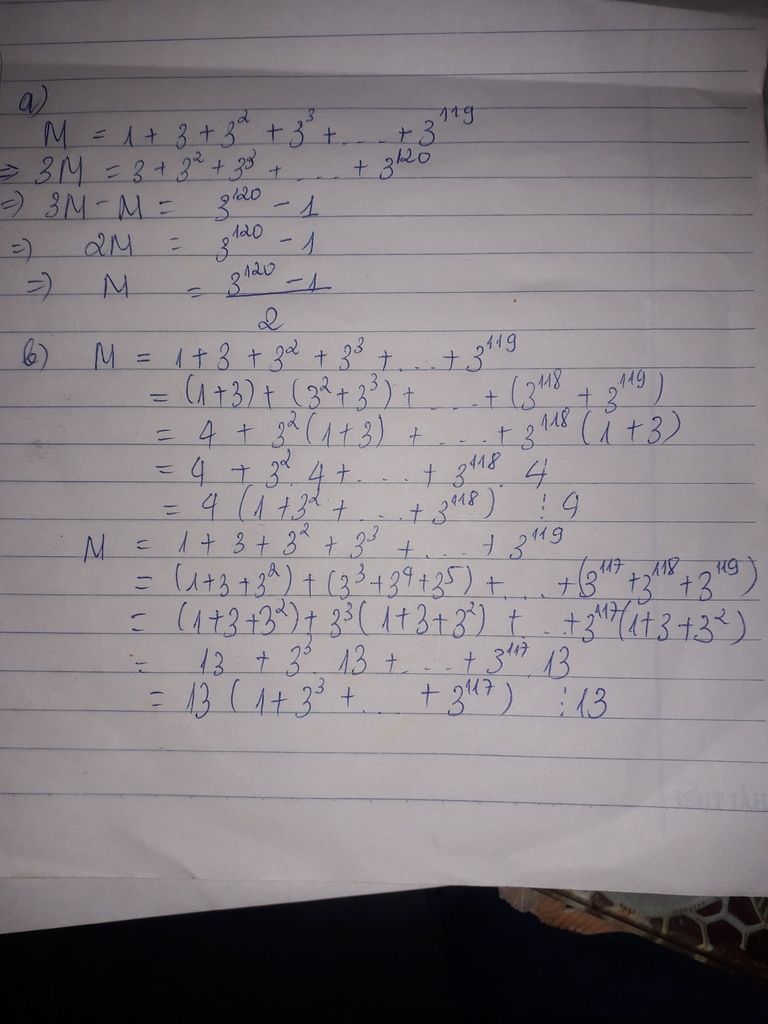 a)
M = 1 + 3 + 3² + 3³ + .... + 3¹¹⁹
⇒ 3M = 3 + 3² + 3³ + .... + 3¹²⁰
⇒ 3M - M = 3¹²⁰ - 1
⇒ 2M = 3¹²⁰ - 1
⇒ M = (3¹²⁰ - 1)/2
b) M = 1 + 3 + 3² + 3³ + ... + 3¹¹⁹
= (1+3) + (3² + 3³) + .... + (3¹¹⁸ + 3¹¹⁹)
= 4 + 3²(1+3) + .... + 3¹¹⁸(1+3)
= 4 + 3².4 + .... + 3¹¹⁸.4
= 4(1+3² + .... + 3¹¹⁸) ⋮ 4
M = 1 + 3 + 3² + 3³ + .... + 3¹¹⁹
= (1+3+3²) + (3³+3⁴+3⁵) + .... + (3¹¹⁷+3¹¹⁸+3¹¹⁹)
= (1+3+3²) + 3³(1+3+3²) + ... + 3¹¹⁷(1+3+3²)
= 13 + 3³.13 + .... + 3¹¹⁷.13
= 13(1+3³ + .... + 3¹¹⁷) ⋮ 13